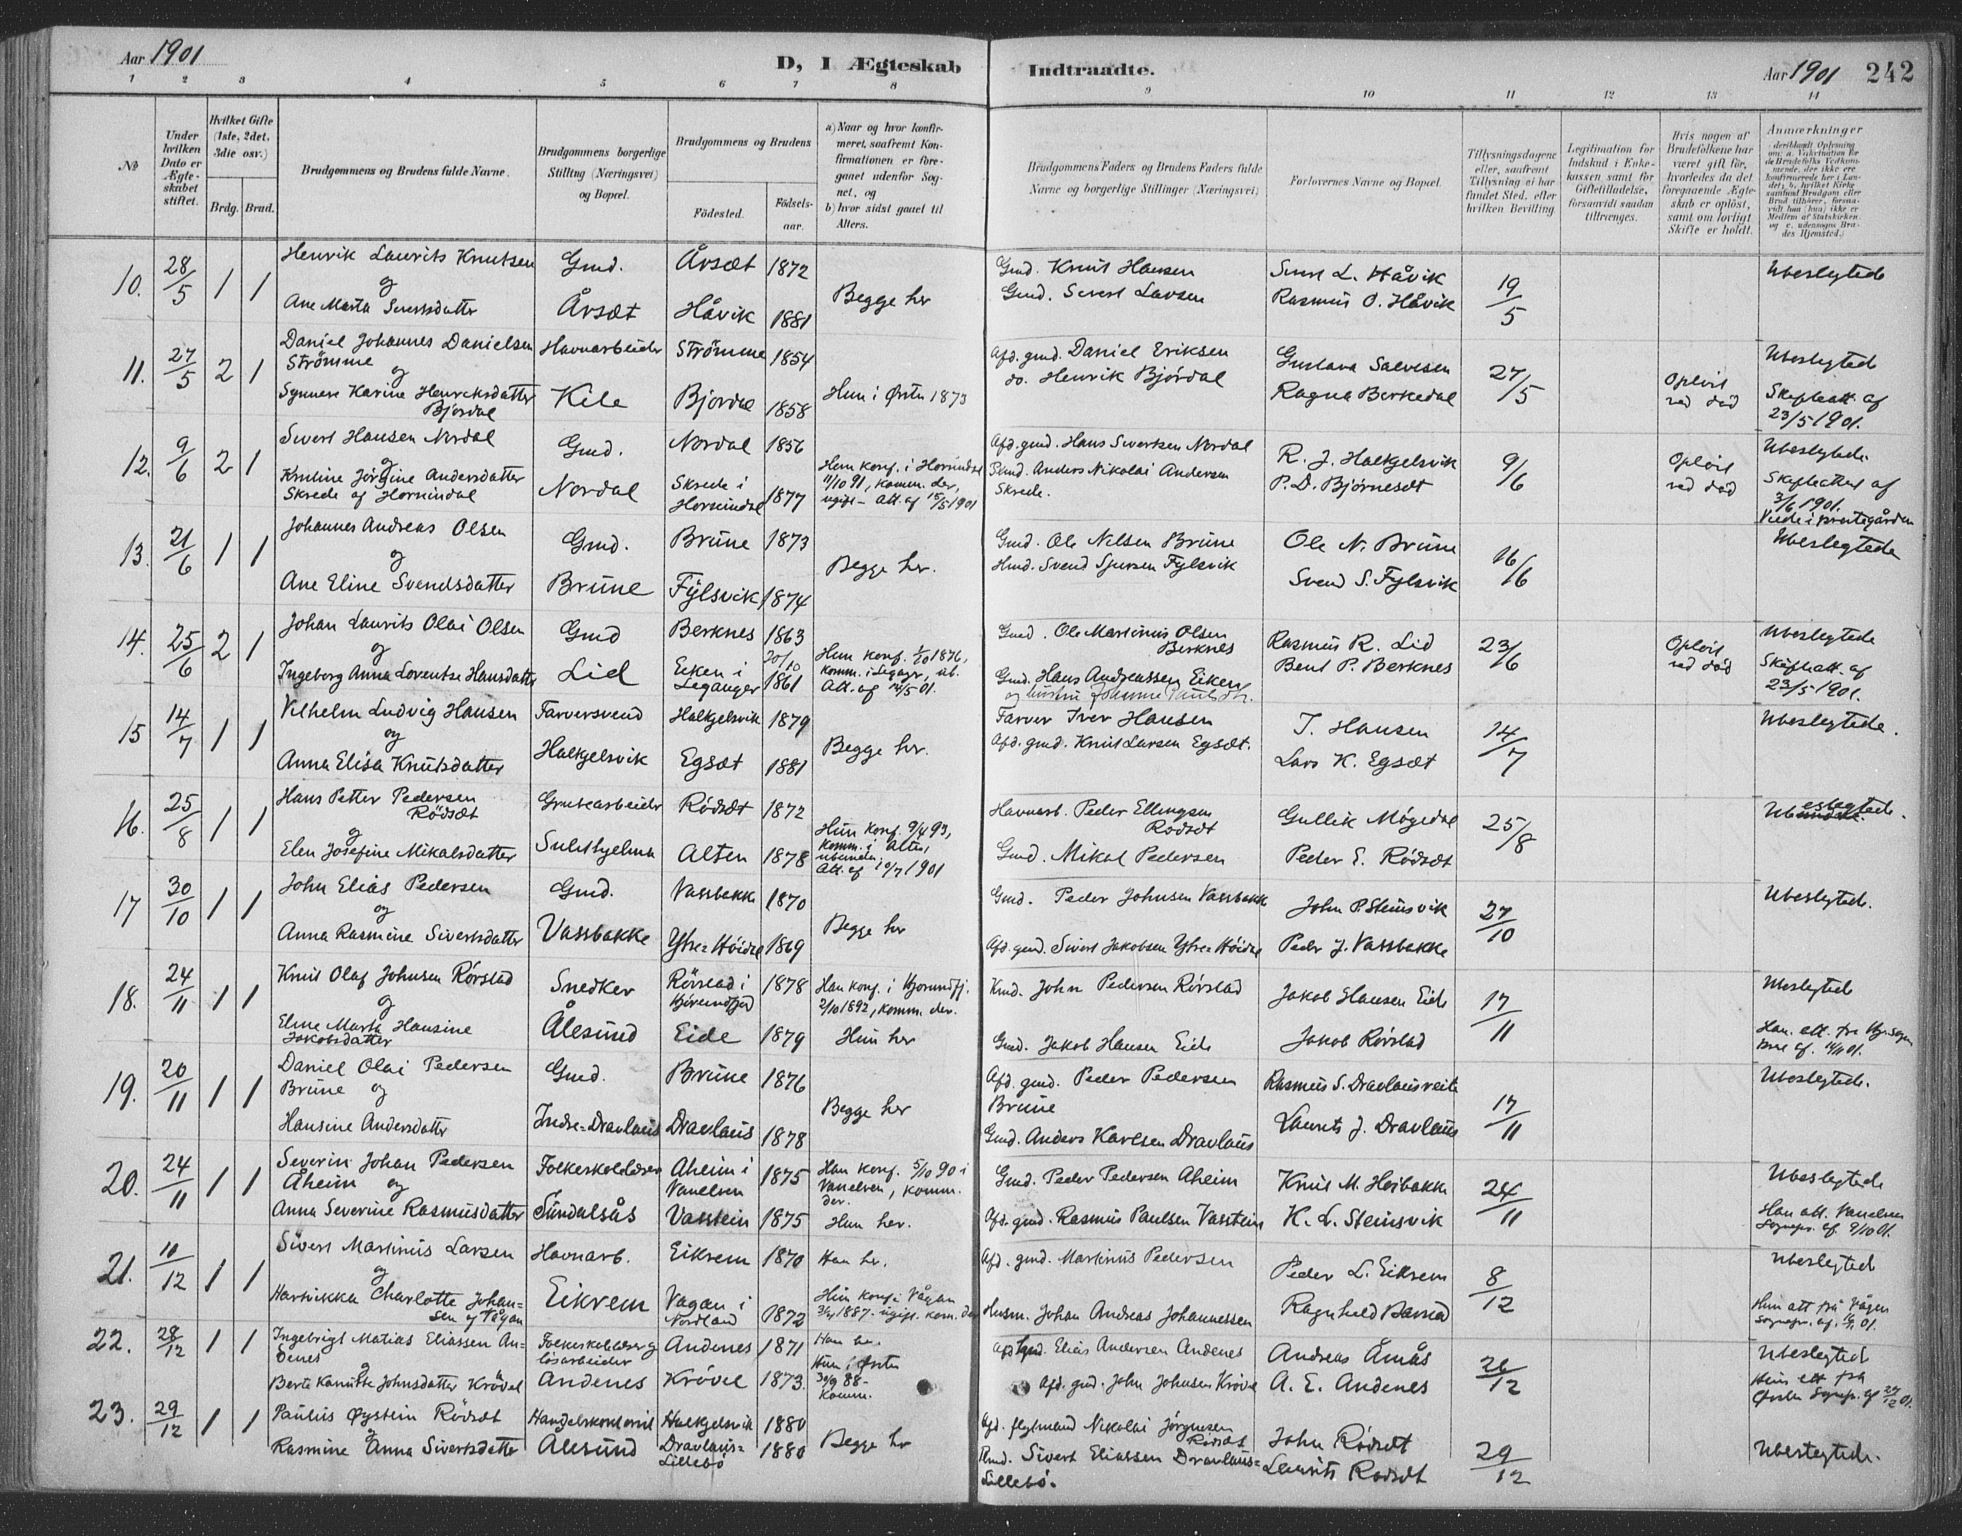 Aar 1901
D, I Ægteskab Indtraadte.
Aar 1901 242
1 2 3 4 5 6 7 8 9 10 11 12 13 14
No
Under hvilken Dato er Ægteskabet stiftet.
Hvilket Gifte (1ste, 2det, 3die osv.)
Brdg. Brud.
Brudgommens og Brudens fulde Navne.
Brudgommens borgerlige Stilling (Næringsvei) og Bopæl.
Brudgommens og Brudens
Födested. Födselsaar.
a) Naar og hvor konfirmeret, saafremt Konfirmationen er foregaaet udenfor Sognet, og
b) hvor sidst gaaet til Alters.
Brudgommens Faders og Brudens Faders fulde Navne og borgerlige Stillinger (Næringsvei).
Forlovernes Navne og Bopæl.
Tillysningsdagene eller, saafremt Tillysning ei har fundet Sted, efter hvilken Bevilling
Legitimation for Indskud i Enkekassen samt for Giftetilladelse, forsaavidt saadan tiltrænges.
Hvis nogen af Brudefolkene har været gift før, hvorledes da det foregaaende Ægteskab er oplöst, samt om lovligt Skifte er holdt.
Anmærkninger
10. 28/5 1 1 Henrik Laurits Knutsen Gmd. Årsæt 1872
og
Ane Marta Sivertsdatter Årsæt Håvik 1881 Begge her
Gmd. Knut Hansen Sivert L. Håvik 19/5 Ubeslegtede
Gmd. Sivert Larsen Rasmus O. Håvik
11. 27/5 2 1 Daniel Johannes Danielsen Havnarbeider Strømme 1854
Strømme
og
Synnere Karine Henriksdatter Kile Bjordal 1858 Hun i Ørsten 1873
Bjordal
Afd. gmd. Daniel Eriksen Gustava Salvesen 27/5 Opløst ved død Ubeslegtede
do. Henrik Bjørdal Ragna Berkedal Skifteatt. af 23/5 1901.
12. 9/6 2 1 Sivert Hansen Nordal Gmd. Nordal 1856
og
Kristine Jørgine Andersdatter Nordal Skrede i Hornindal 1877
Skrede af Hornindal
Hun konf. i Hornindal 11/10 91, komm. der, ugift - Att. af 15/5 1901
Afd. gmd. Hans Sivertsen Nordal R. J. Halkjelsvik 9/6 Opløst ved død Ubeslegtede.
Gmd. Anders Nikolai Andersen P. D. Bjørnesæt Skifteattest af 3/6 1901.
Skrede. Viede i prestegården
13. 21/6 1 1 Johannes Andreas Olsen Gmd. Brune 1873
og
Ane Eline Svendsdatter Brune Fylsvik 1874 Begge her.
Gmd. Ole Nilsen Brune Ole N. Brune 16/6 Ubeslegtede
Hmd. Svend Sjursen Fylsvik Svend S. Fylsvik
14. 25/6 2 1 Johan Laurits Olai Olsen Gmd Berknes 1863
og 20/10
Ingeborg Anna Lorentse Hansdatter Lid Eiken i Leganger 1861
Hun konf. 1/10 1876, komm. i Leganger, Att. af 14/5 01.
Gmd. Ole Martinus Olsen Berknes Rasmus R. Lid 23/6 Opløst ved død Ubeslegtede
Gmd. Hans Andreassen Eiken Bent P. Berknes Skifteatt. af 23/5 1901.
og hustru Johanne Paulsdtr.
15 14/7 1 1 Vilhelm Ludvig Hansen Farversvend Halkjelsvik 1879
og
Anna Elisa Knutsdatter Halkjelsvik Egsæt 1881 Begge her.
Farver Iver Hansen I. Hansen 14/7 Ubeslegtede.
Afd. gmd. Knut Larsen Egsæt. Lars K. Egsæt
16. 25/8 1 1 Hans Petter Pedersen Grubearbeider Rødsæt 1872
Rødsæt
og
Elen Josefine Mikalsdatter Sulithjelma Alten 1878
Hun konf. 9/4 93, komm. i Alten, Att. af 10/7 1901
Havnarb. Peder Ellingsen Rødsæt Gullik Møgedal 25/8 Ubeslegtede.
Gmd. Mikal Pedersen Peder E. Rødsæt
17 30/10 1 1 John Elias Pedersen Gmd. Vassbakke 1870
og
Anna Rasmine Sivertsdatter Vassbakke Ytre-Høidal 1869 Begge her
Gmd. Peder Johnsen Vassbakke John P. Steinsvik 27/10 Ubeslegtede.
Afd. gmd. Sivert Jakobsen Ytre-Høidal Peder J. Vassbakke
18. 24/11 1 1 Knut Olaf Johnsen Rörstad Snedker Rörstad i Hjörundfjord 1878
og
Eline Marta Hansine Ålesund Eide 1879
Jakobsdatter
Han konf. i Hjørundfj. 2/10 1892, komm. der.
Hun her
Gmd. John Pedersen Rörstad Jakob Hansen Eide 17/11 Ubeslegtede
Gmd. Jakob Hansen Eide Jakob Rörstad
19. 20/11 1 1 Daniel Olai Pedersen Gmd. Brune 1876
Brune og
Hansine Andersdatter Indre-Dravlaus Dravlaus 1878 Begge her
Afd. gmd. Peder Pedersen Rasmus S. Dravlausreite 17/11 Ubeslegtede.
Brune
Gmd. Anders Karlsen Dravlaus Laurits J. Dravlaus
20. 24/11 1 1 Severin Johan Pedersen Folkeskolelærer Aheim i Vanelven 1875
Åheim og
Anna Severine Rasmusdatter Sundalsås Vasstein 1875
Han konf. 5/10 90 i Vanelven, komm. der.
Hun her.
Gmd. Peder Pedersen Aheim Knut M. Heibakke 24/11 Ubeslegtede
Afd. gmd. Rasmus Paulsen Vasstein K. L. Steinsvik Han att. Vanelven Sognepr. af 9/10 01.
21. 10/12 1 1 Sivert Martinus Larsen Havnarb. Eikrem 1870 Han her.
og
Hartvikka Charlotte Johansen af Vågan Eikrem Vagan i Nordland 1872
Hun konf. i Vågan 1887. ugift. kom. der
Afd. gmd. Martinus Pedersen Peder L. Eikrem 8/12 Ubeslegtede
Husm. Johan Andreas Johannessen Ragnhild Barstad Hun att fra Vågan Sognepr. af 01.
22. 28/12 1 1 Ingebrigt Matias Eliassen Andenes Folkeskolelærer og løsarbeider Andenes 1871 Han her.
og
Berte Kanutte Johnsdatter Krövel Andenes Krövel 1873. Hun i Ørsten 30/9 88 - komm.
Afd. gmd. Elias Andersen Andenes Andreas Åmås 26/12 Ubeslegtede
Afd. gmd. John Johnsen Krövel A. E. Andenes Hun att fra Ørsten Sognep. af 27/12 01.
23. 29/12 1 1 Paulus Øystein Rödsæt Handelskontorist Halkjelsvik 1880
og
Rasmine Anna Sivertsdatter Ålesund Dravlaus-Lillebö 1880 Begge her
Afd. Nikolai Jørgensen Rödsæt John Rödsæt 29/12 Ubeslegtede.
Gmd. Sivert Eliassen Dravlaus-Lillebö. Laurits Rödsæt